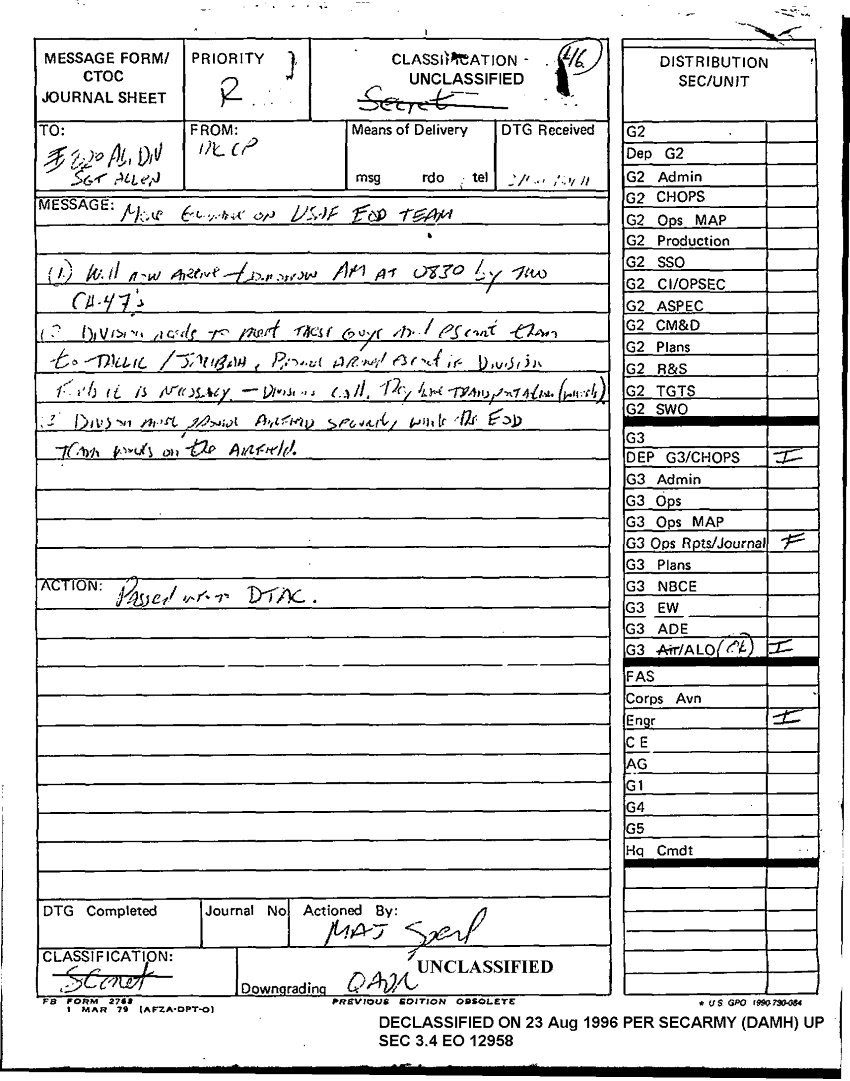 MESSAGE FORM/
CTOC
JOURNAL SHEET
PRIORITY
R
CLASSIFICATION
UNCLASSIFIED
Secret
46
TO:
SGT ALLEN
FROM:
Means of Delivery
msg rdo tel
DTG Received
MESSAGE: More Guidance on USAF EOD TEAM
(1) Will now Arrive tomorrow AM AT 0830 by TWO
CH-47's
Division needs to meet These Guys And escort them
to TALLIL / JALIBAH, Provide Armed escort if Division
Feels it is Necessary. — Division's call. They have TRANSPORTATION
Division must provide Airfield security while the EOD
Team works on the Airfield.
ACTION: Passed DTAC.
DTG Completed
Journal No
Actioned By:
MAJ
CLASSIFICATION:
Secret
Downgrading OADR
UNCLASSIFIED
FB FORM 2768
1 MAR 79 (AFZA-DPT-O)
PREVIOUS EDITION OBSOLETE
DISTRIBUTION
SEC/UNIT
G2
Dep G2
G2 Admin
G2 CHOPS
G2 Ops MAP
G2 Production
G2 SSO
G2 CI/OPSEC
G2 ASPEC
G2 CM&D
G2 Plans
G2 R&S
G2 TGTS
G2 SWO
G3
DEP G3/CHOPS I
G3 Admin
G3 Ops
G3 Ops MAP
G3 Ops Rpts/Journal F
G3 Plans
G3 NBCE
G3 EW
G3 ADE
G3 Air/ALO I
FAS
Corps Avn
Engr I
C E
AG
G1
G4
G5
Hq Cmdt
* U S GPO 1990-730-084
DECLASSIFIED ON 23 Aug 1996 PER SECARMY (DAMH) UP
SEC 3.4 EO 12958